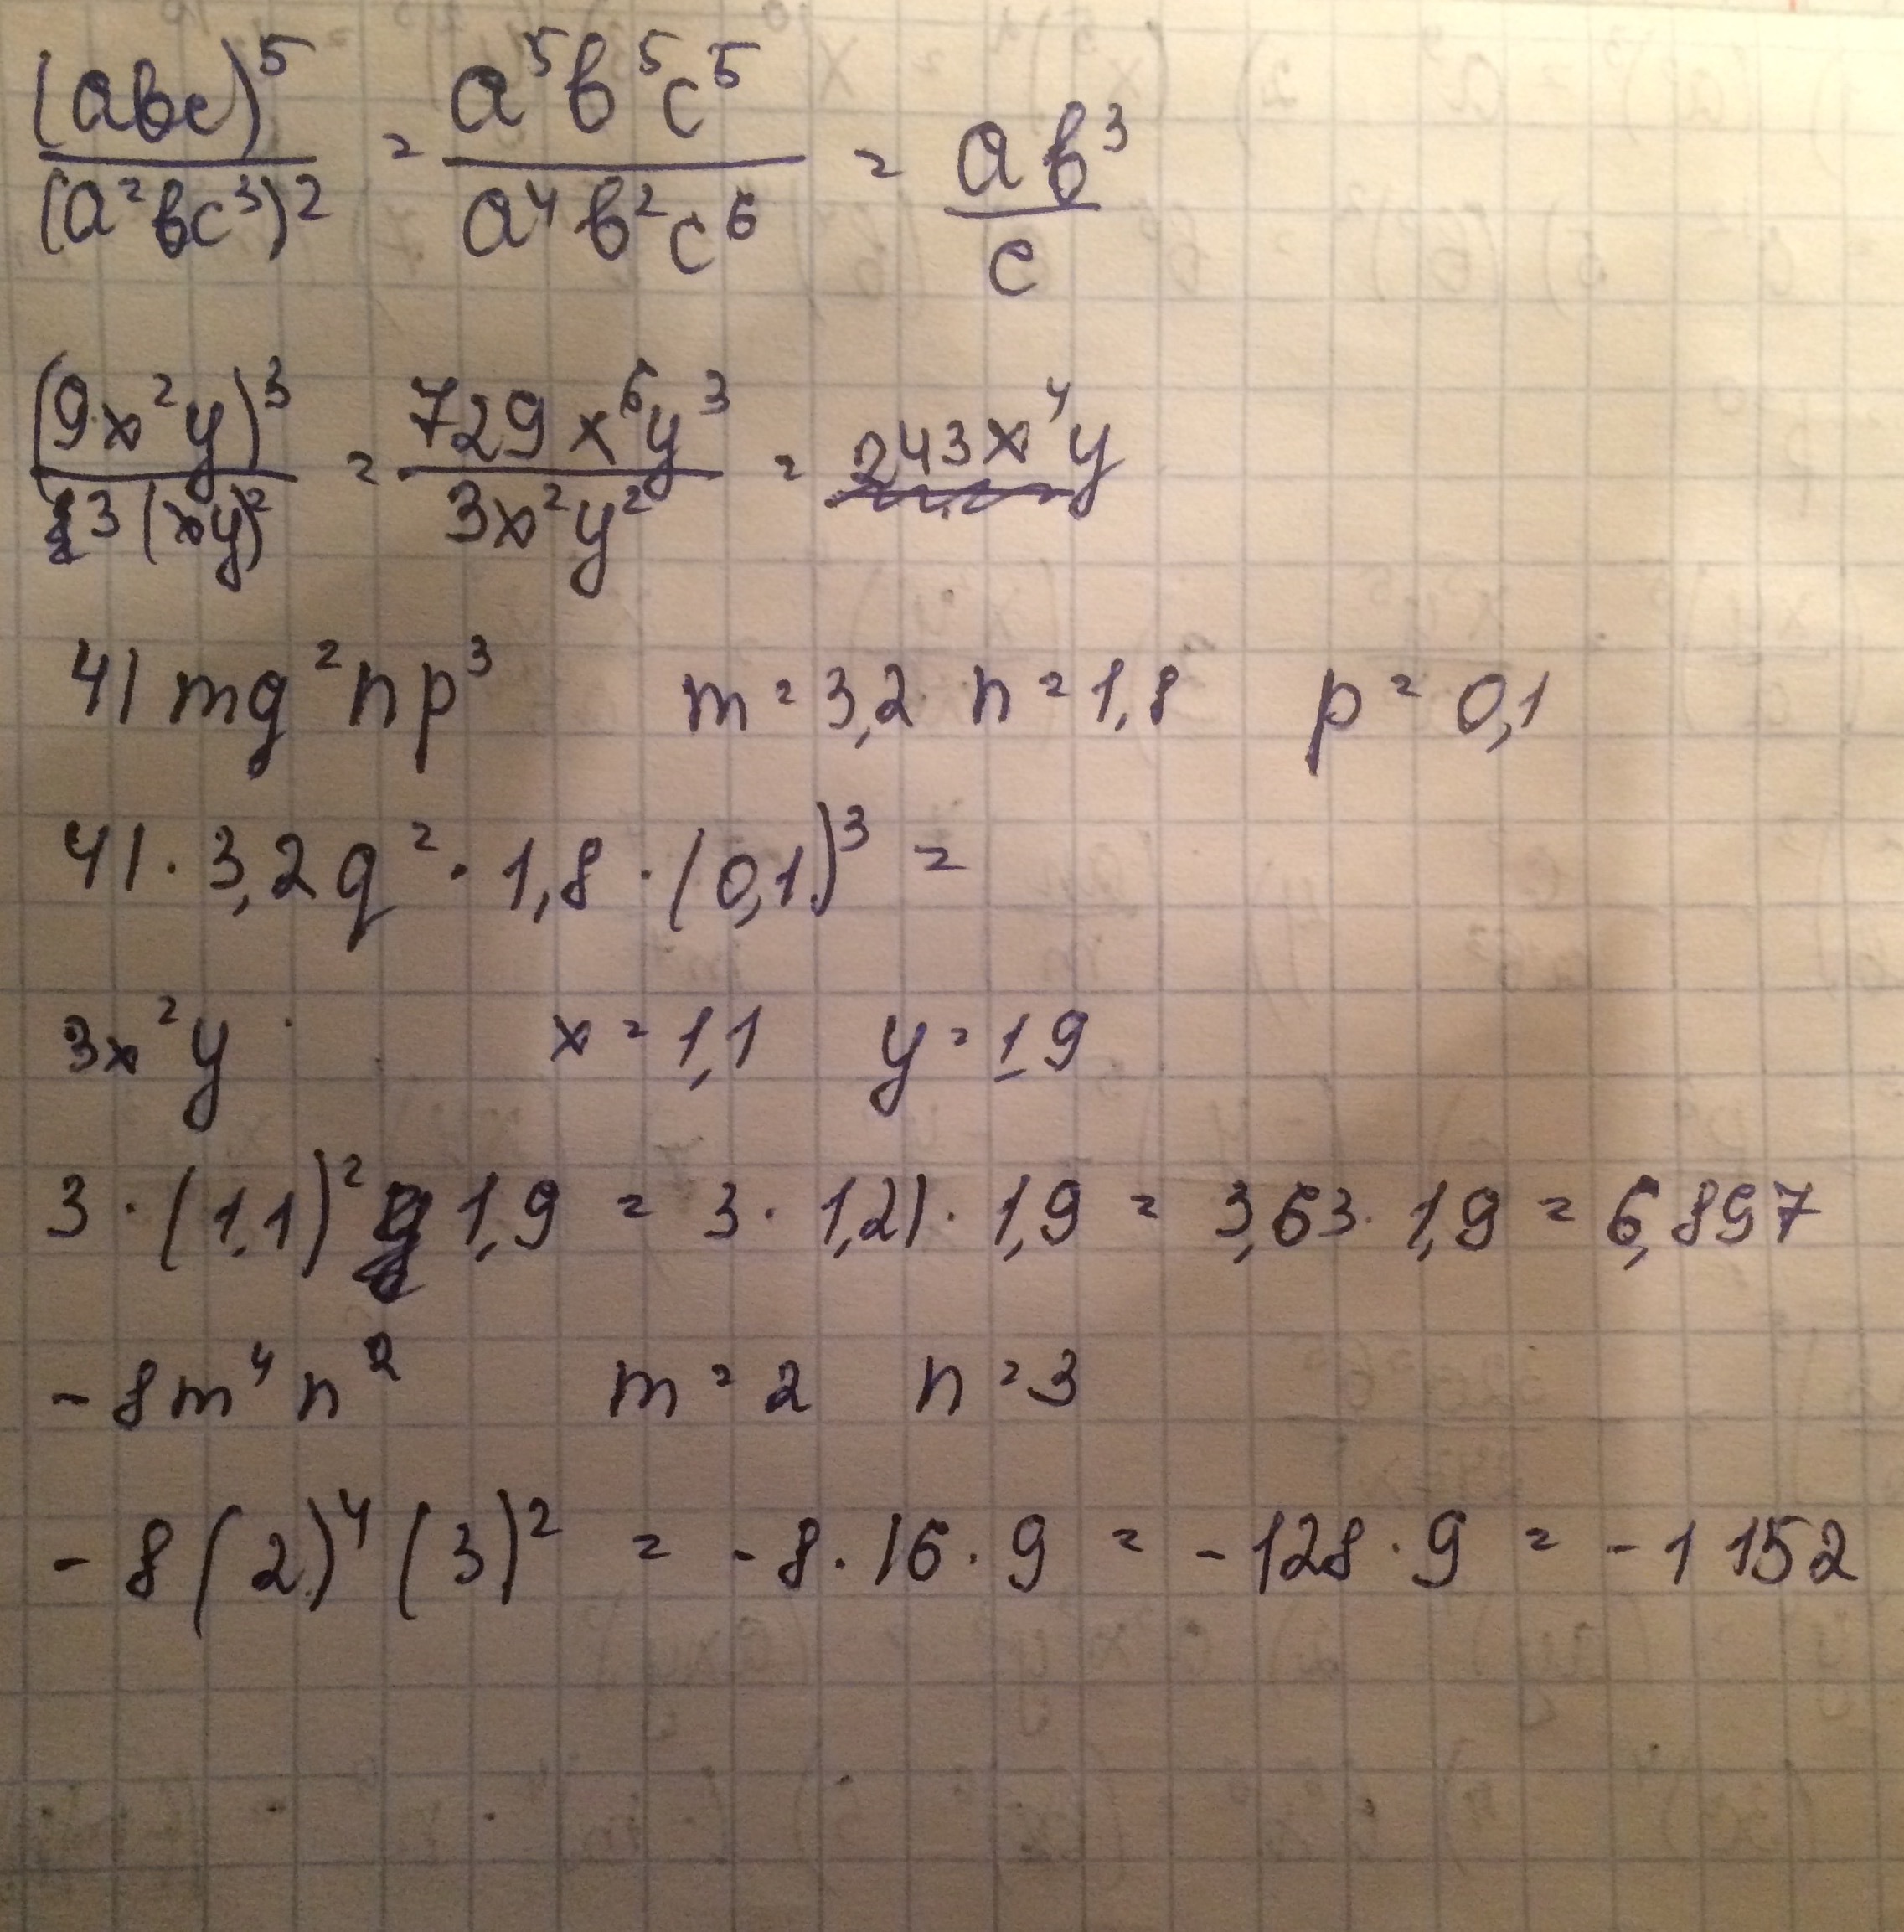 (abc)⁵/(a²bc³)² = a⁵b⁵c⁵/a⁴b²c⁶ = ab³/c
(9x²y)³/3(xy)² = 729x⁶y³/3x²y² = 243x⁴y
41mg²np³ m = 3,2 n = 1,8 p = 0,1
41 · 3,2q² · 1,8 · (0,1)³ =
3x²y x = 1,1 y = 1,9
3 · (1,1)² 1,9 = 3 · 1,21 · 1,9 = 3,63 · 1,9 = 6,897
- 8m⁴n² m = 2 n = 3
- 8(2)⁴(3)² = - 8 · 16 · 9 = - 128 · 9 = - 1 152